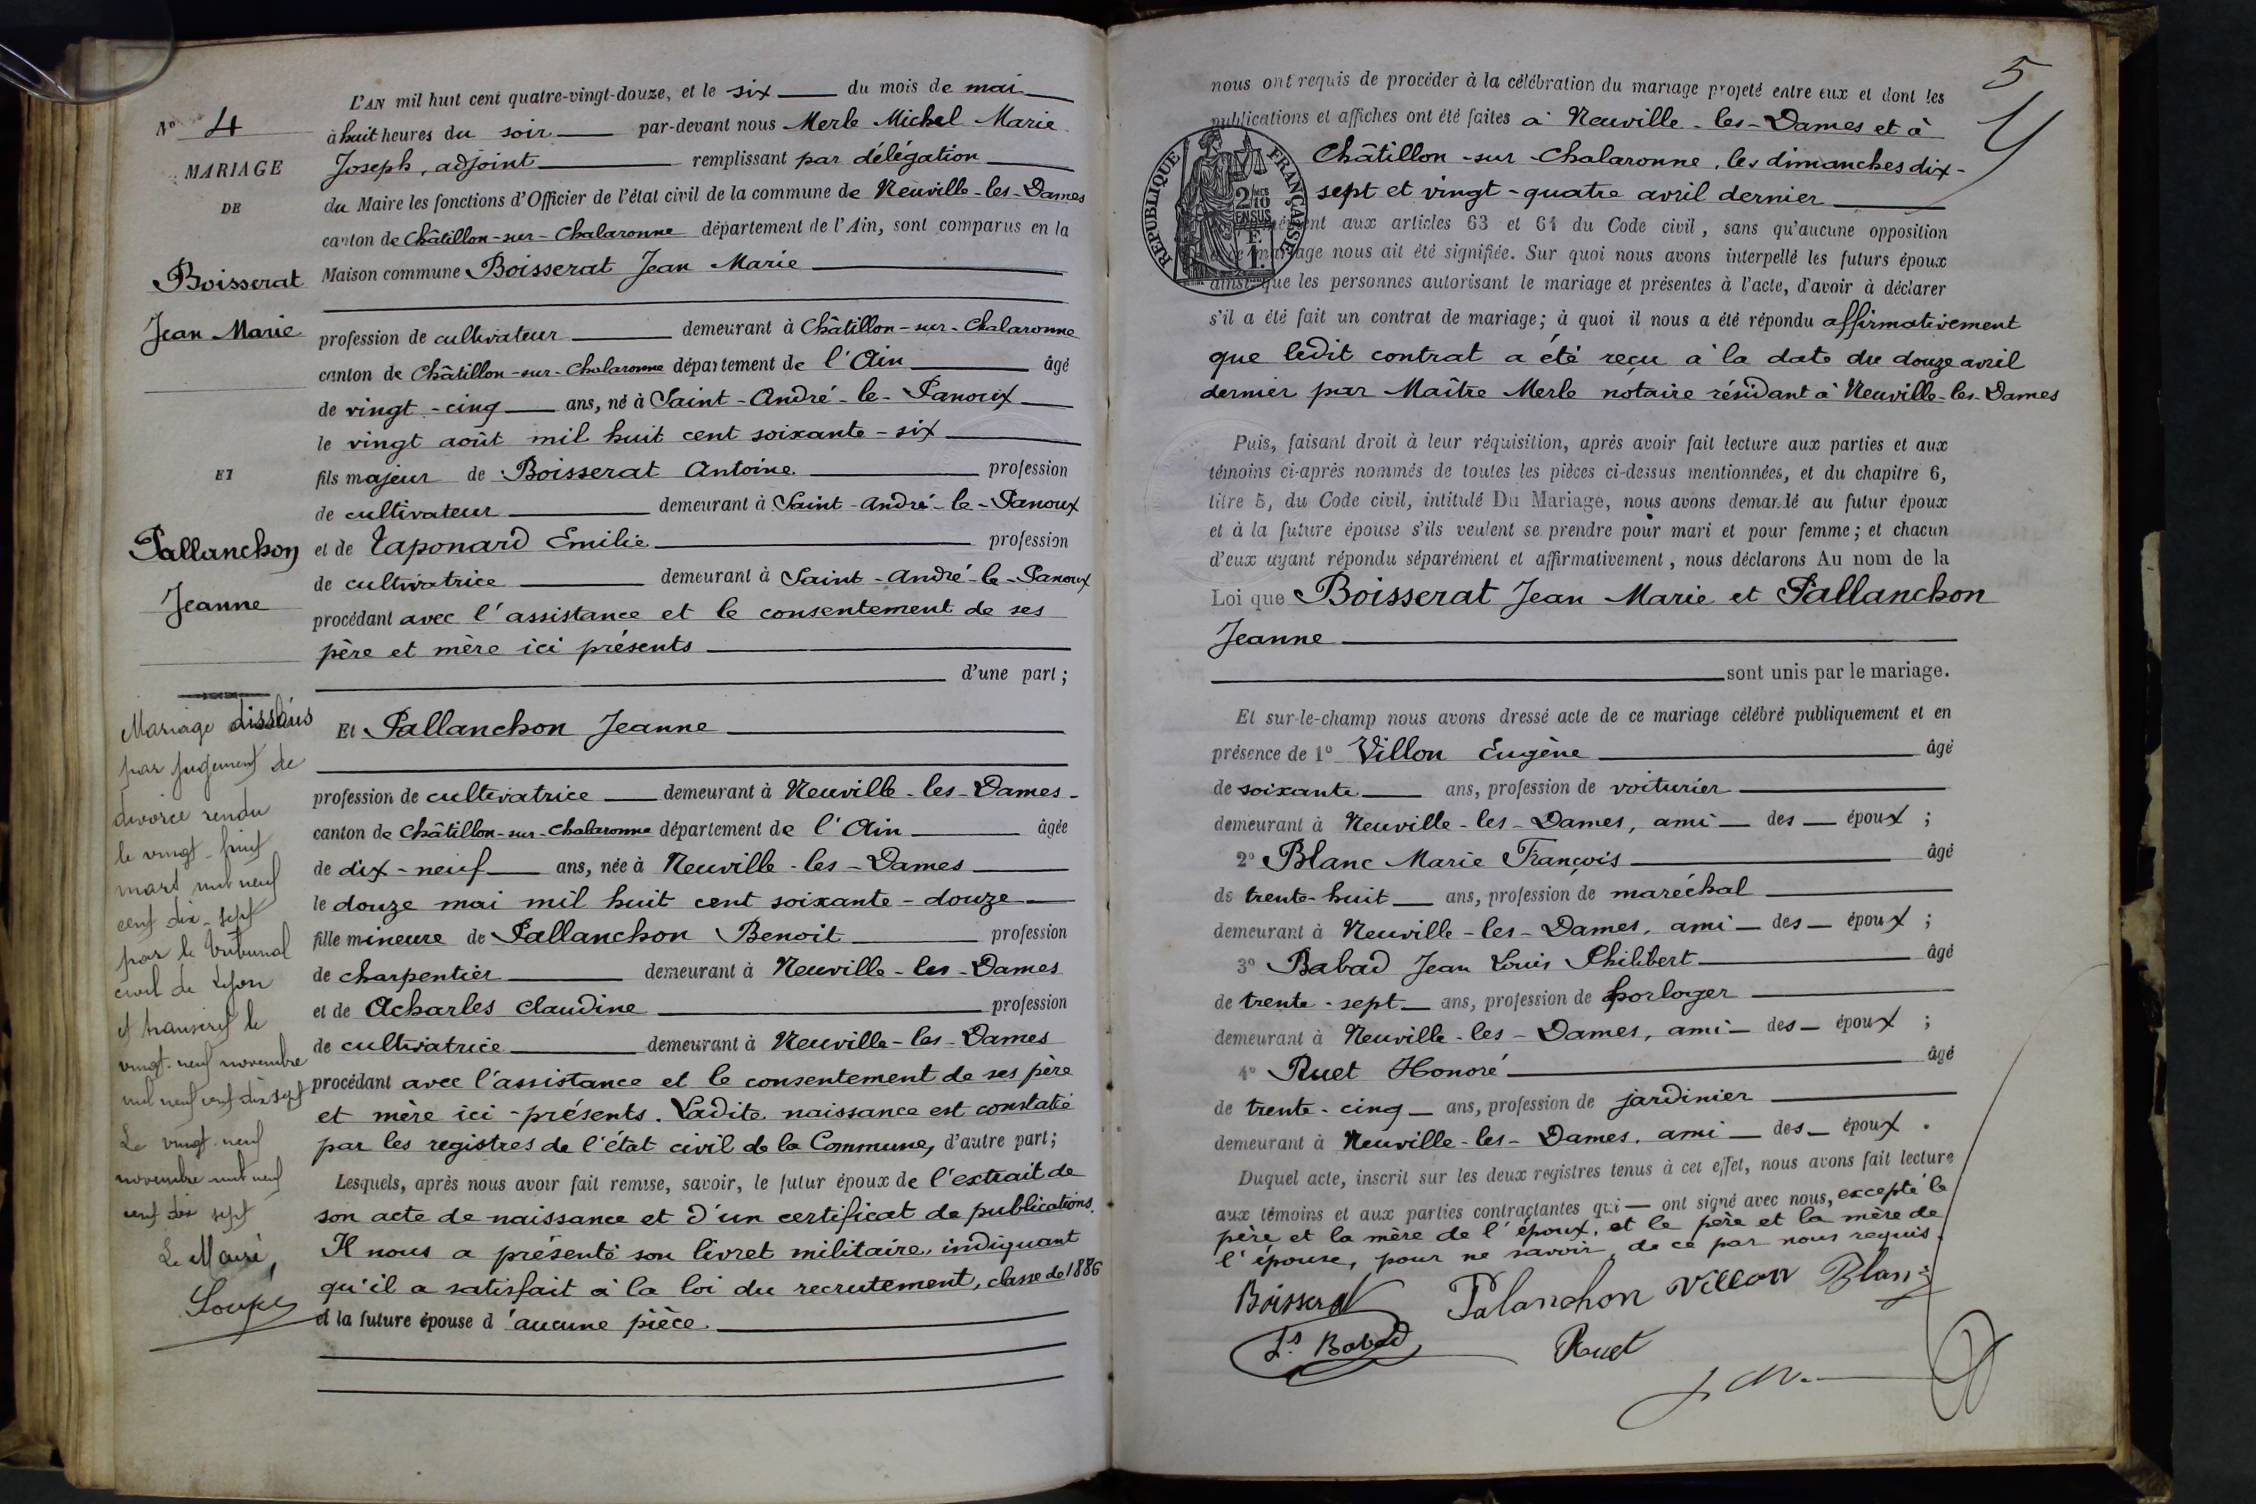 L'AN mil huit cent quatre-vingt-douze, et le six du mois de mai
N° 4
à huit heures du soir par-devant nous Merle Michel Marie
MARIAGE
Joseph, adjoint remplissant par délégation
DE
du Maire les fonctions d'Officier de l'état civil de la commune de Neuville-les-Dames
canton de Châtillon-sur-Chalaronne département de l'Ain, sont comparus en la
Boisserat
Maison commune Boisserat Jean Marie
Jean Marie
profession de cultivateur demeurant à Châtillon-sur-Chalaronne
canton de Châtillon-sur-Chalaronne département de l'Ain âgé
de vingt-cinq ans, né à Saint-André-le-Panoux
le vingt août mil huit cent soixante-six
ET
fils majeur de Boisserat Antoine profession
de cultivateur demeurant à Saint-André-le-Panoux
Pallanchon
et de Taponard Emilie profession
de cultivatrice demeurant à Saint-André-le-Panoux
Jeanne
procédant avec l'assistance et le consentement de ses
père et mère ici présents
d'une part;
Mariage dissous
par jugement de
divorce rendu
le vingt-huit
mars mil neuf
cent dix-sept
par le tribunal
civil de Lyon
et transcrit le
vingt-neuf novembre
mil neuf cent dix sept
Le vingt-neuf
novembre mil neuf
cent dix sept
Le Maire,
Et Pallanchon Jeanne
profession de cultivatrice demeurant à Neuville-les-Dames-
canton de Châtillon-sur-Chalaronne département de l'Ain âgée
de dix-neuf ans, née à Neuville-les-Dames
le douze mai mil huit cent soixante-douze
fille mineure de Pallanchon Benoit profession
de charpentier demeurant à Neuville-les-Dames
et de Acharles Claudine profession
de cultivatrice demeurant à Neuville-les-Dames
procédant avec l'assistance et le consentement de ses père
et mère ici-présents. Ladite naissance est constatée
par les registres de l'état civil de la Commune, d'autre part;
Lesquels, après nous avoir fait remise, savoir, le futur époux de l'extrait de
son acte de naissance et d'un certificat de publications.
Il nous a présenté son livret militaire, indiquant
qu'il a satisfait à la loi du recrutement, classe de 1886
et la future épouse d'aucune pièce.
5
nous ont requis de procéder à la célébration du mariage projeté entre eux et dont les
publications et affiches ont été faites à Neuville-les-Dames et à
Châtillon-sur-Chalaronne, les dimanches dix-
sept et vingt-quatre avril dernier
RÉPUBLIQUE FRANÇAISE
2/10
EN SUS
aux articles 63 et 64 du Code civil, sans qu'aucune opposition
mariage nous ait été signifiée. Sur quoi nous avons interpellé les futurs époux
ainsi que les personnes autorisant le mariage et présentes à l'acte, d'avoir à déclarer
s'il a été fait un contrat de mariage; à quoi il nous a été répondu affirmativement
que ledit contrat a été reçu à la date du douze avril
dernier par Maître Merle notaire résidant à Neuville-les-Dames
Puis, faisant droit à leur réquisition, après avoir fait lecture aux parties et aux
témoins ci-après nommés de toutes les pièces ci-dessus mentionnées, et du chapitre 6,
titre 5, du Code civil, intitulé Du Mariage, nous avons demandé au futur époux
et à la future épouse s'ils veulent se prendre pour mari et pour femme; et chacun
d'eux ayant répondu séparément et affirmativement, nous déclarons Au nom de la
Loi que Boisserat Jean Marie et Pallanchon
Jeanne
sont unis par le mariage.
Et sur-le-champ nous avons dressé acte de ce mariage célébré publiquement et en
présence de 1° Villon Eugène âgé
de soixante ans, profession de voiturier
demeurant à Neuville-les-Dames, ami des époux ;
2° Blanc Marie François âgé
de trente-huit ans, profession de maréchal
demeurant à Neuville-les-Dames, ami des époux ;
3° Babad Jean Louis Philibert âgé
de trente-sept ans, profession de horloger
demeurant à Neuville-les-Dames, ami des époux ;
4° Ruet Honoré âgé
de trente-cinq ans, profession de jardinier
demeurant à Neuville-les-Dames, ami des époux.
Duquel acte, inscrit sur les deux registres tenus à cet effet, nous avons fait lecture
aux témoins et aux parties contractantes qui ont signé avec nous, excepté le
père et la mère de l'époux, et le père et la mère de
l'épouse, pour ne savoir, de ce par nous requis.
Boisserat Palanchon Villon Blanc
Ls Babad Ruet